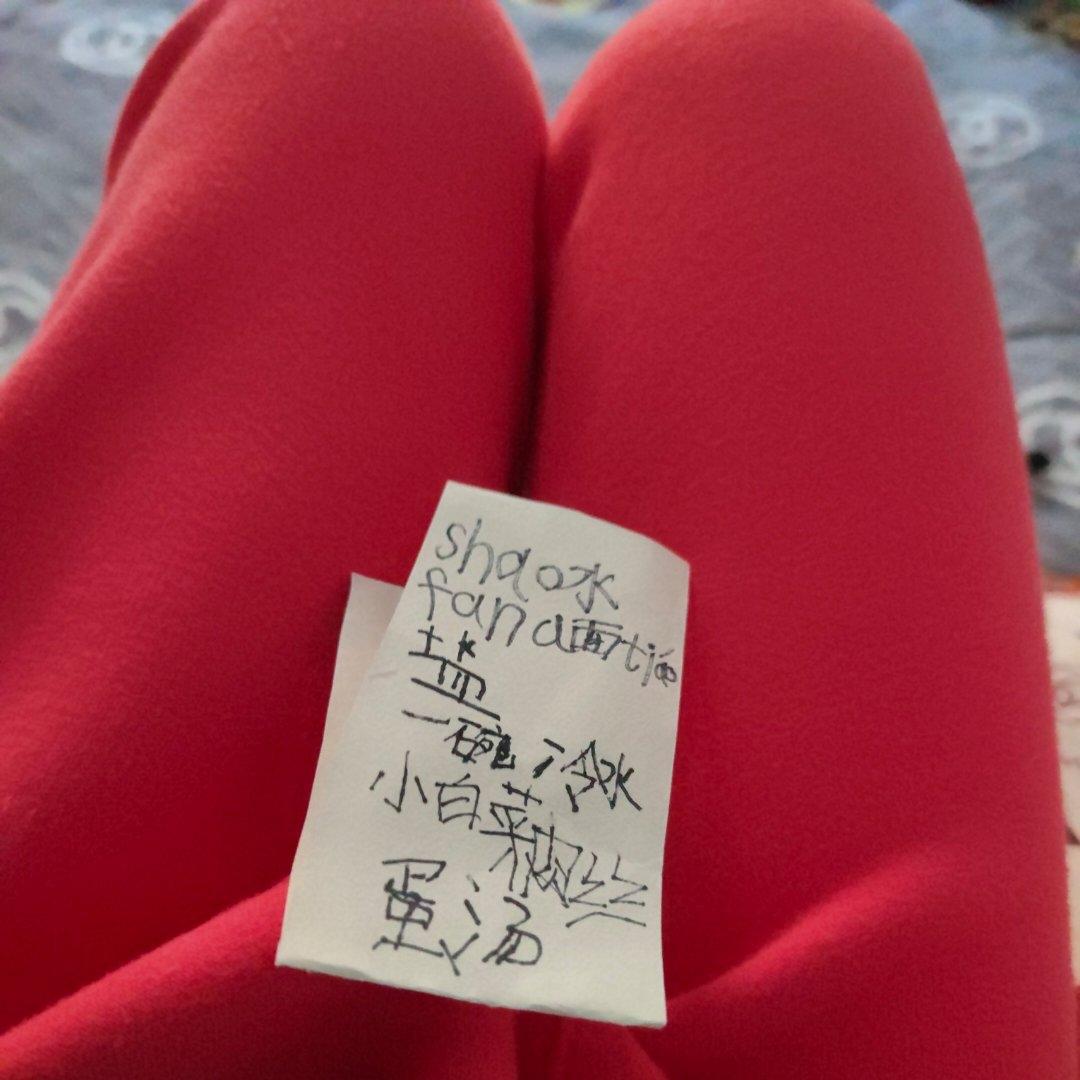 shao水
fang面tiáo
盐
一碗冷水
小白菜肉丝
蛋汤